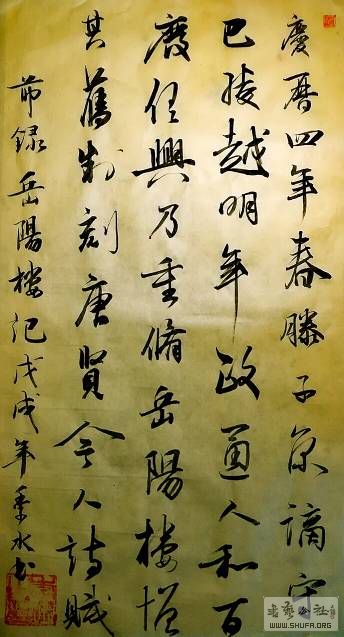 慶曆四年春滕子京謫守
巴陵越明年政通人和百
廢俱興乃重脩岳陽樓增
其舊制刻唐賢今人詩賦
節錄岳陽樓記戊戌年水書
书艺公社
WWW.SHUFA.ORG